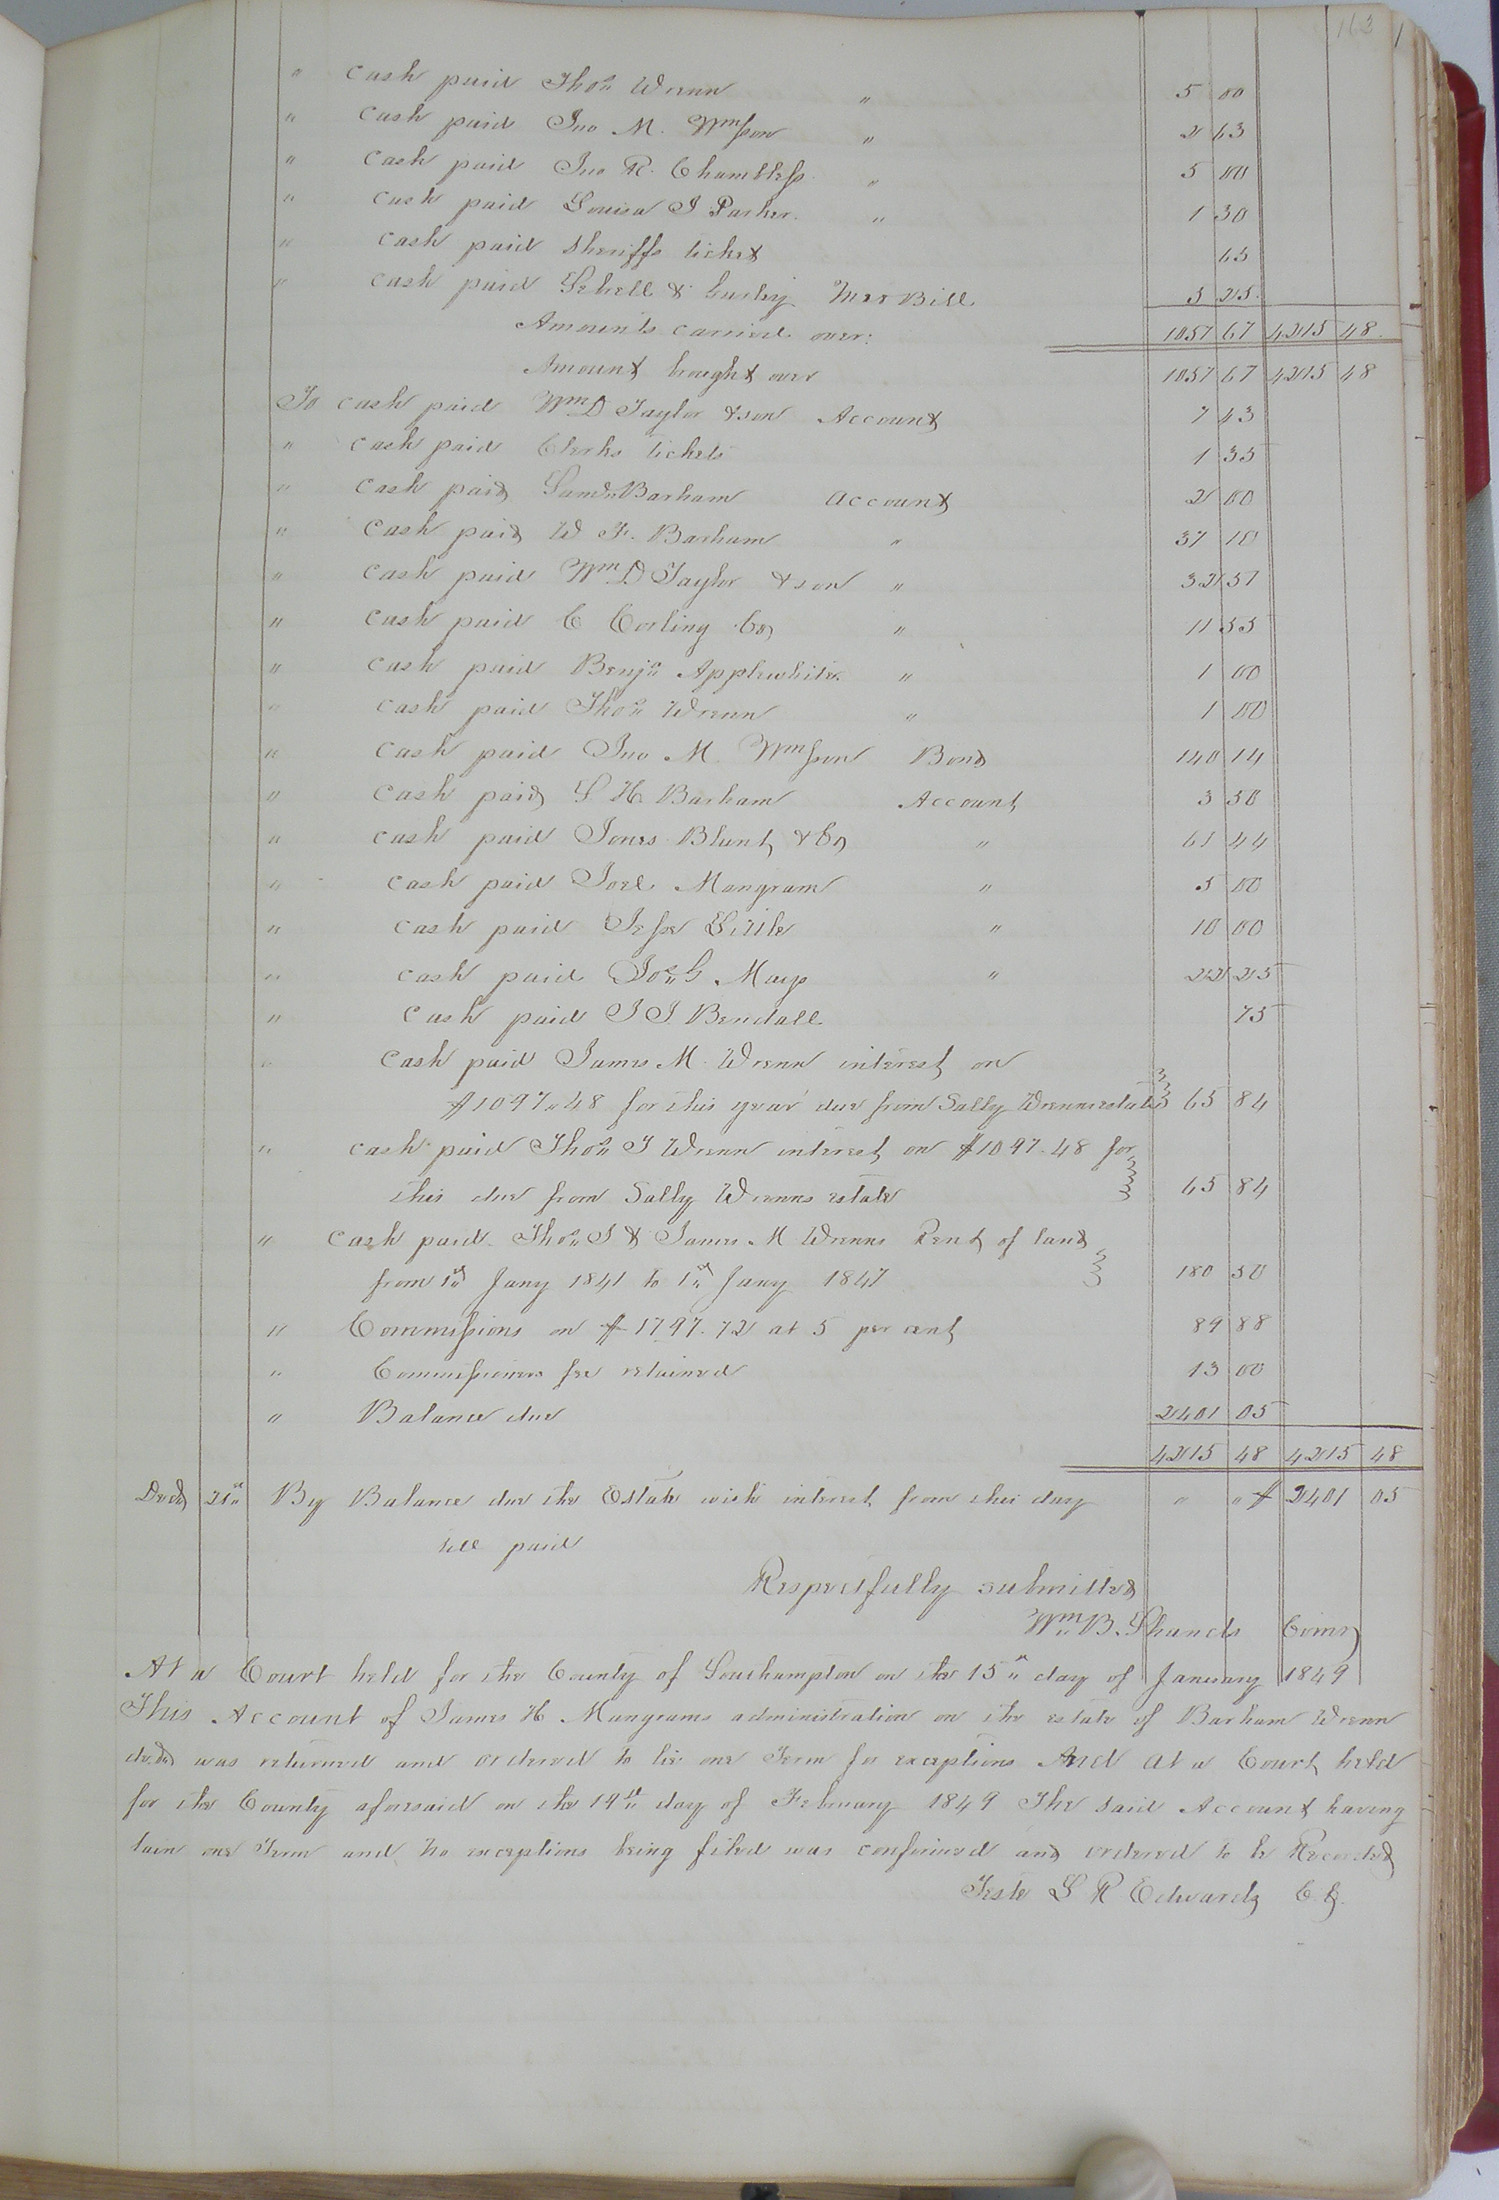 163
" Cash paid Thos Wrenn " 5 00
" Cash paid Jno M. Wmson " 2 63
" Cash paid Jno R. Chambless " 5 00
" Cash paid Louisa J Parker " 1 30
" Cash paid Sheriffs ticket 65
" Cash paid & Mer Bill 5 25
Amounts carried over: 1057 67 4215 48
Amount brought over 1057 67 4215 48
To cash paid Wm D Taylor & son Account 7 43
" Cash paid Clerks tickets 1 35
" Cash paid Saml Barham Account 2 00
" Cash paid W F. Barham " 37 10
" Cash paid Wm D Taylor & son " 32 57
" Cash paid C Corling Co " 11 55
" Cash paid Benjn Applewhite " 1 00
" Cash paid Thos Wrenn " 1 00
" Cash paid Jno M. Wmson Bond 140 14
" Cash paid S H Barham Account 3 50
" Cash paid Jones Blunt & Co " 61 44
" Cash paid Joel Mangram " 5 00
" Cash paid Jesse Little " 10 00
" Cash paid Jos G Mays " 22 25
" Cash paid J J Bendall 75
" Cash paid James M Wrenn interest on
$1097.48 for this year due from Sally Wrenns estate 65 84
" Cash paid Thos J Wrenn interest on $1097.48 for
this due from Sally Wrenns estate 65 84
" Cash paid Thos J & James M Wrenns Rent of land
from 1st Jany 1841 to 1st Jany 1847 180 50
" Commissions on $1797.72 at 5 per cent 89 88
" Commissioners fee retained 13 00
" Balance due 2401 05
4215 48 4215 48
Decd 31st By Balance due the Estate with interest from this day " " $ 2401 05
till paid
Respectfully submitted
Wm B. Shands Comr
At a Court held for the County of Southampton on the 15th day of January 1849
This Account of James H Mangrams administration on the estate of Barham Wrenn
decd was returned and ordered to lie one Term for exceptions And at a Court held
for the County aforesaid on the 19th day of February 1849 The said Account having
lain one Term and no exceptions being filed was confirmed and ordered to be Recorded
Teste L R Edwards C.k.